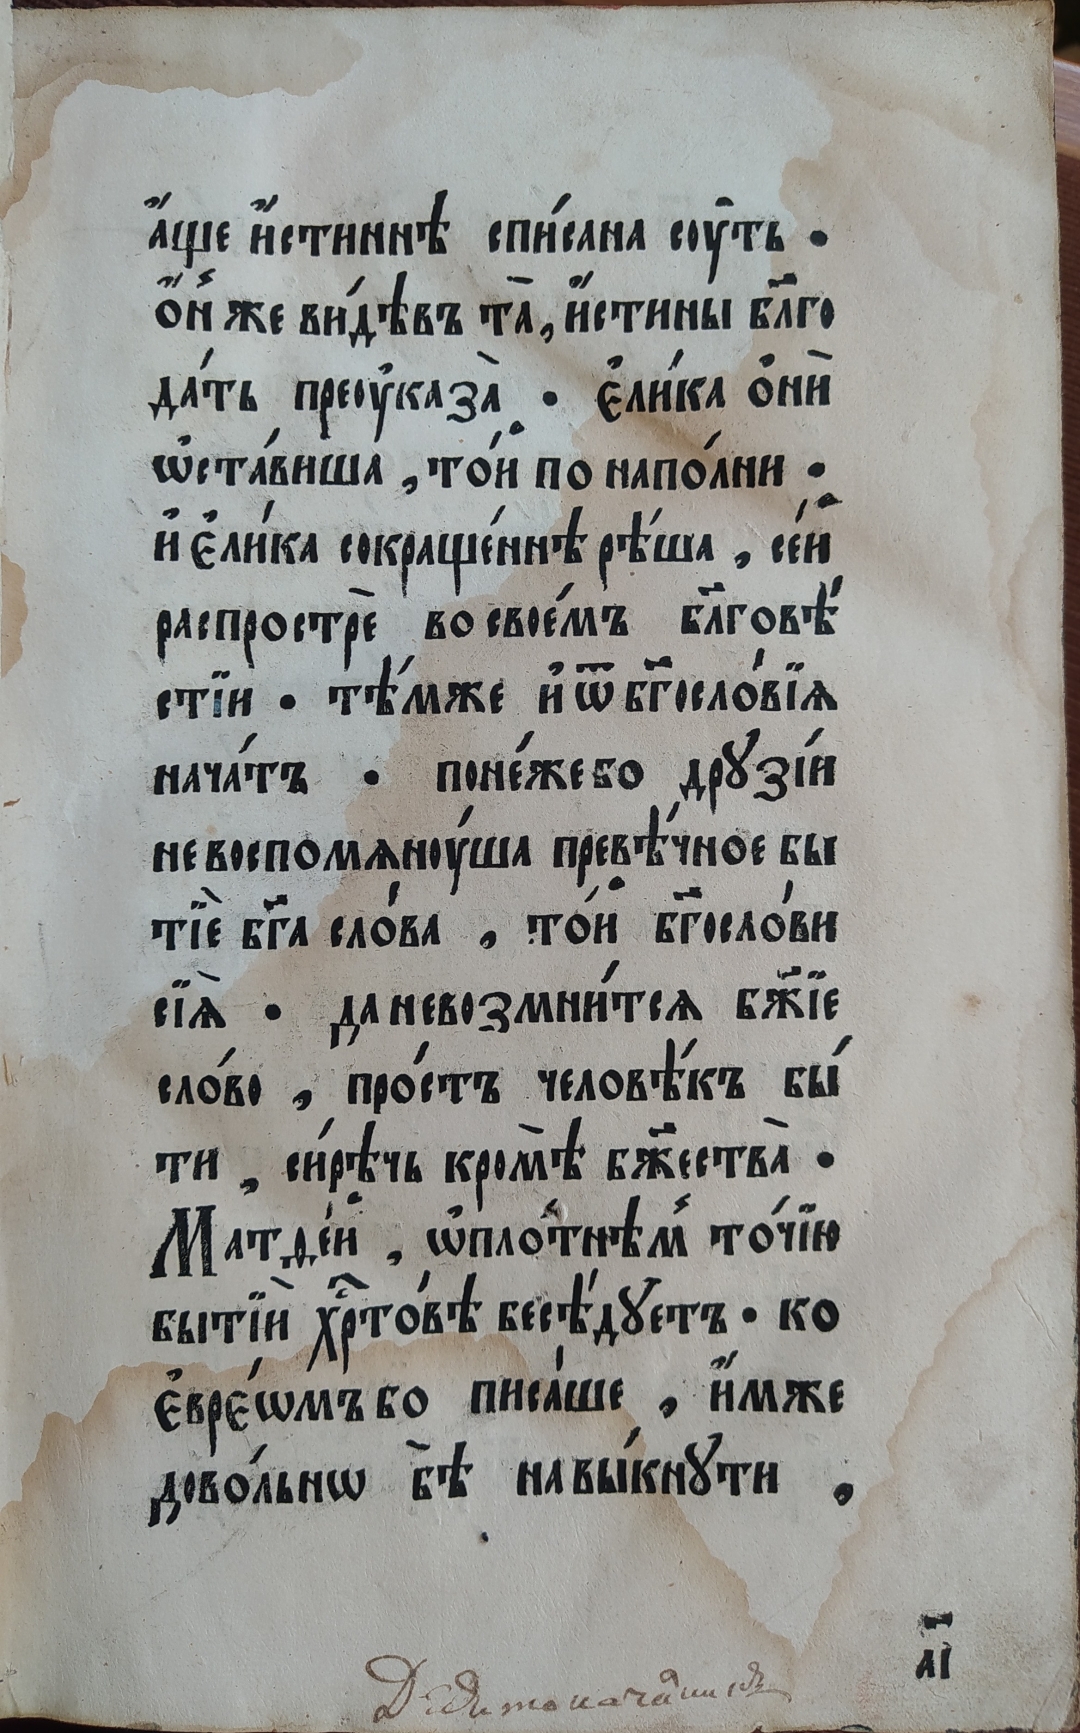 а҆́ще и҆́стиннѣ спи́сана сꙋ̑ть •
ѻ҆́н́ же ви́дѣвъ та̀, и҆́стины бл҃го
да́ть преоу҆каза̀ • є҆ли́ка о҆нѝ
ѡ҆ста́виша , то́й по напо́лни •
и҆ є҆ли́ка сокраще́ннѣ рѣ́ша , се́й
распрострѐ во свое́мъ бл҃говѣ́
стїи • тѣ́мже и҆ ѿ бг҃осло́вїѧ
нача́тъ • поне́жебо дрꙋзі́и
невоспомѧноу́ша превѣ́чное бы
тїѐ бг҃а сло́ва , то́й бг҃осло́ви
сїѧ̀ • даневозмни́тсѧ бж҃їе
сло́во , про́стъ человѣ́къ бы́
ти , си́рѣчь кро́мѣ бж҃ества̀ •
Матѳе́й , ѡ҆пло́тнѣм́ то́чїю
бытїѝ хрⷭ҇то́вѣ бесѣ́дꙋетъ • ко
є҆вре́ѡмъбо писа́ше , и҆́мже
дово́льнѡ бѣ̀ навы́кнꙋти ,
а҃і